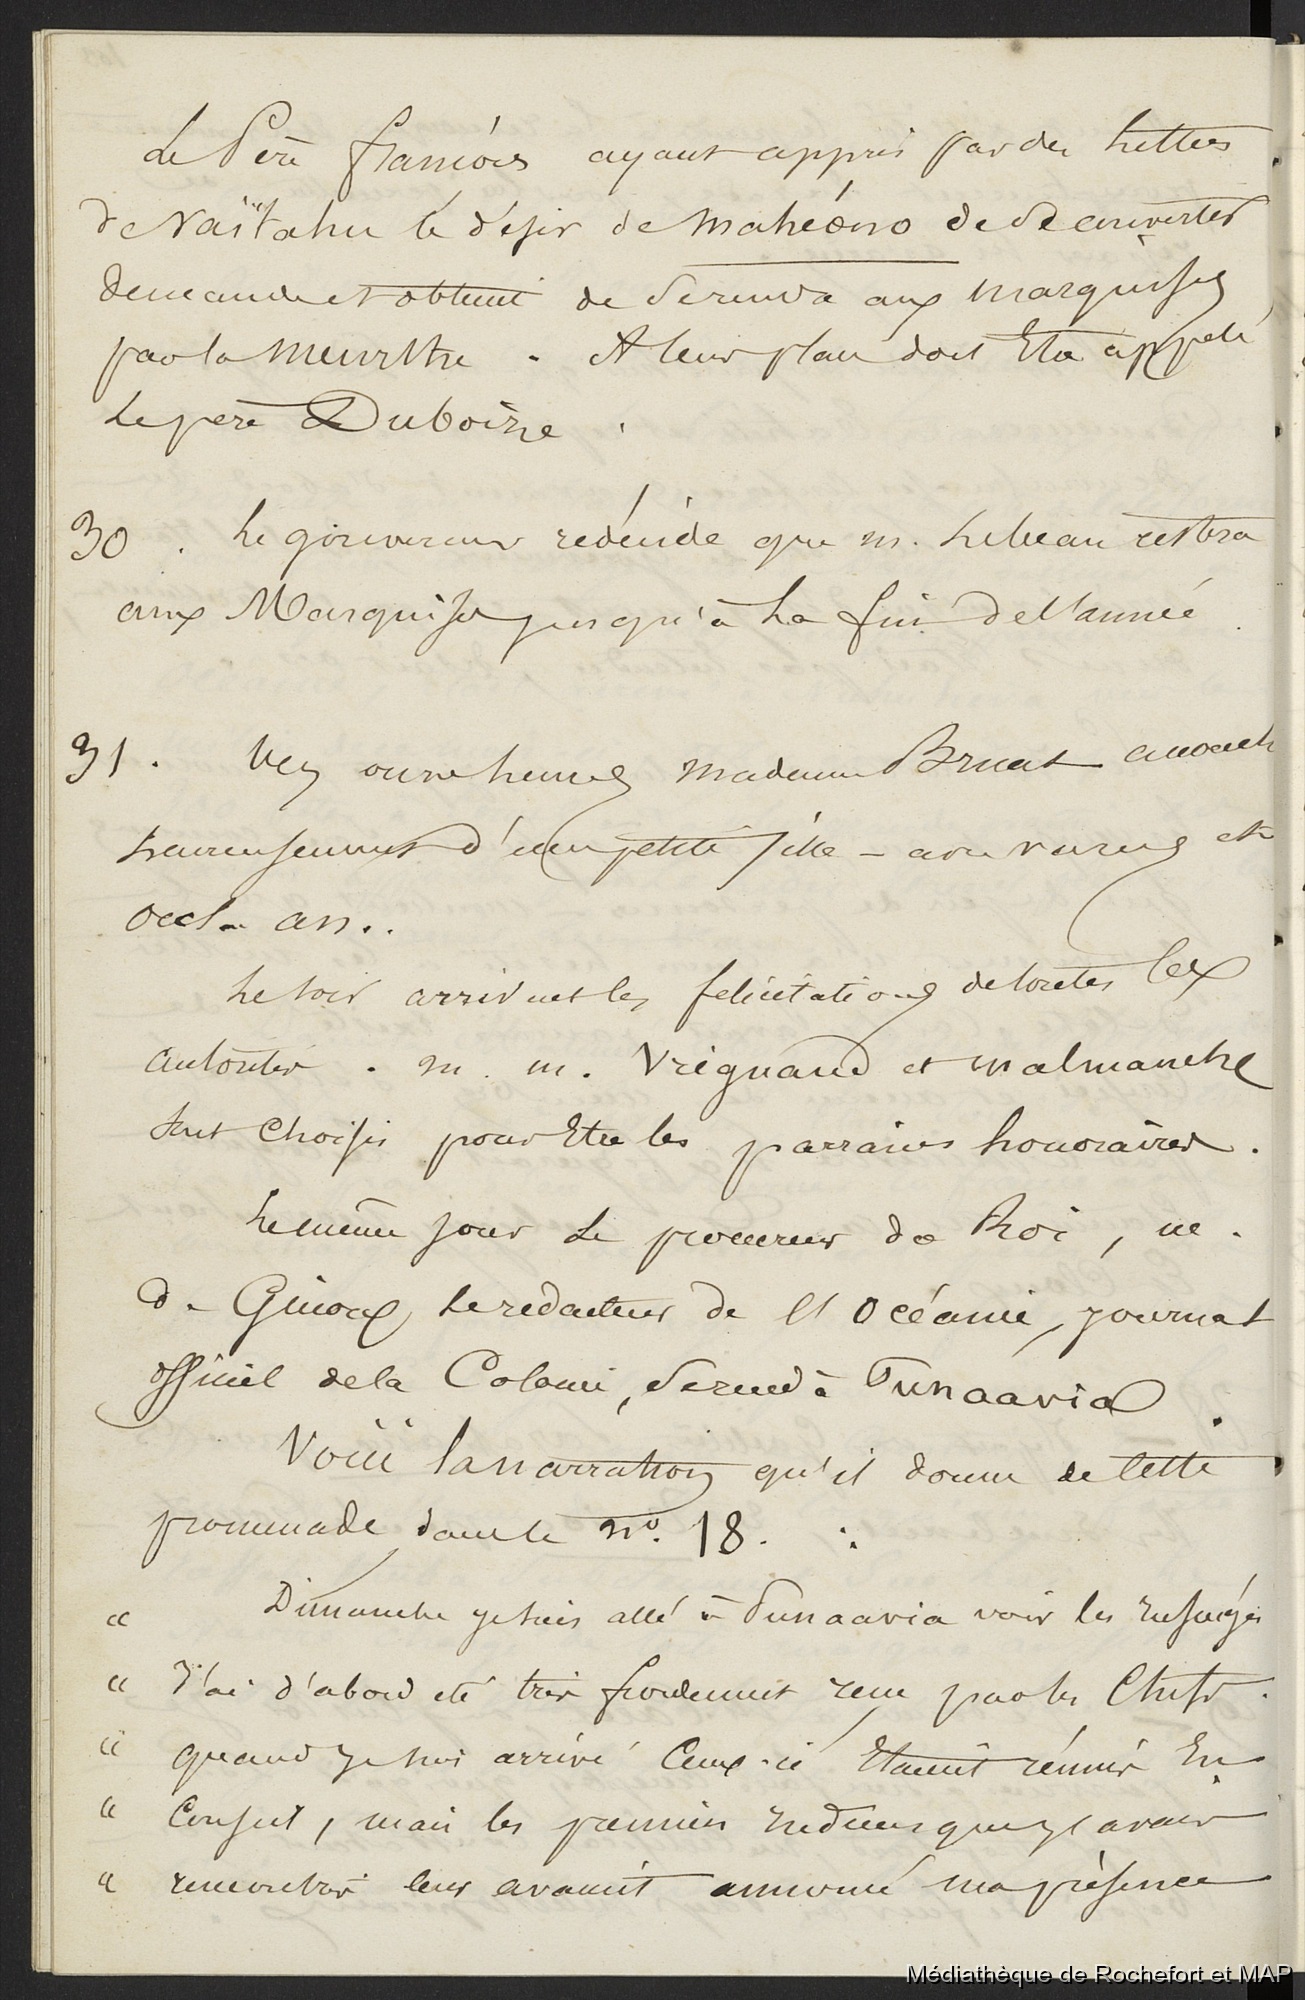 Le Père François ayant appris par des lettres
de Vaïtahu le désir de Mahéono de se convertir
demande et obtient de se rendre aux Marquises
par la Meurthe. A leur place doit Etre appelé
Le père Duboize.
30. Le gouverneur rédécide que M. Lebeau restera
aux Marquises jusqu'à la fin de l'année
31. Vers onze heures madame Bruat accouche
heureusement d'une petite fille
Le soir arrivent les félicitations de toutes les
autorités. M. M. Vrignaud et Malmanche
sont choisis pour Etre les parrains honoraires.
Le même jour Le procureur du Roi, M.
de Ginoux, le rédacteur de l'Océanie, journal
officiel de la Colonie, se rend à Punaavia.
Voici la narration qu'il donne de cette
promenade dans le No. 18. :
" Dimanche je suis allé à Punaavia voir les réfugiés
" J'ai d'abord été très froidement reçu par les Chefs.
" quand je suis arrivé Ceux-ci Etaient réunis En
" Conseil, mais les premiers indiens que j'avais
" rencontrés leur avaient annoncé ma présence
Médiathèque de Rochefort et MAP